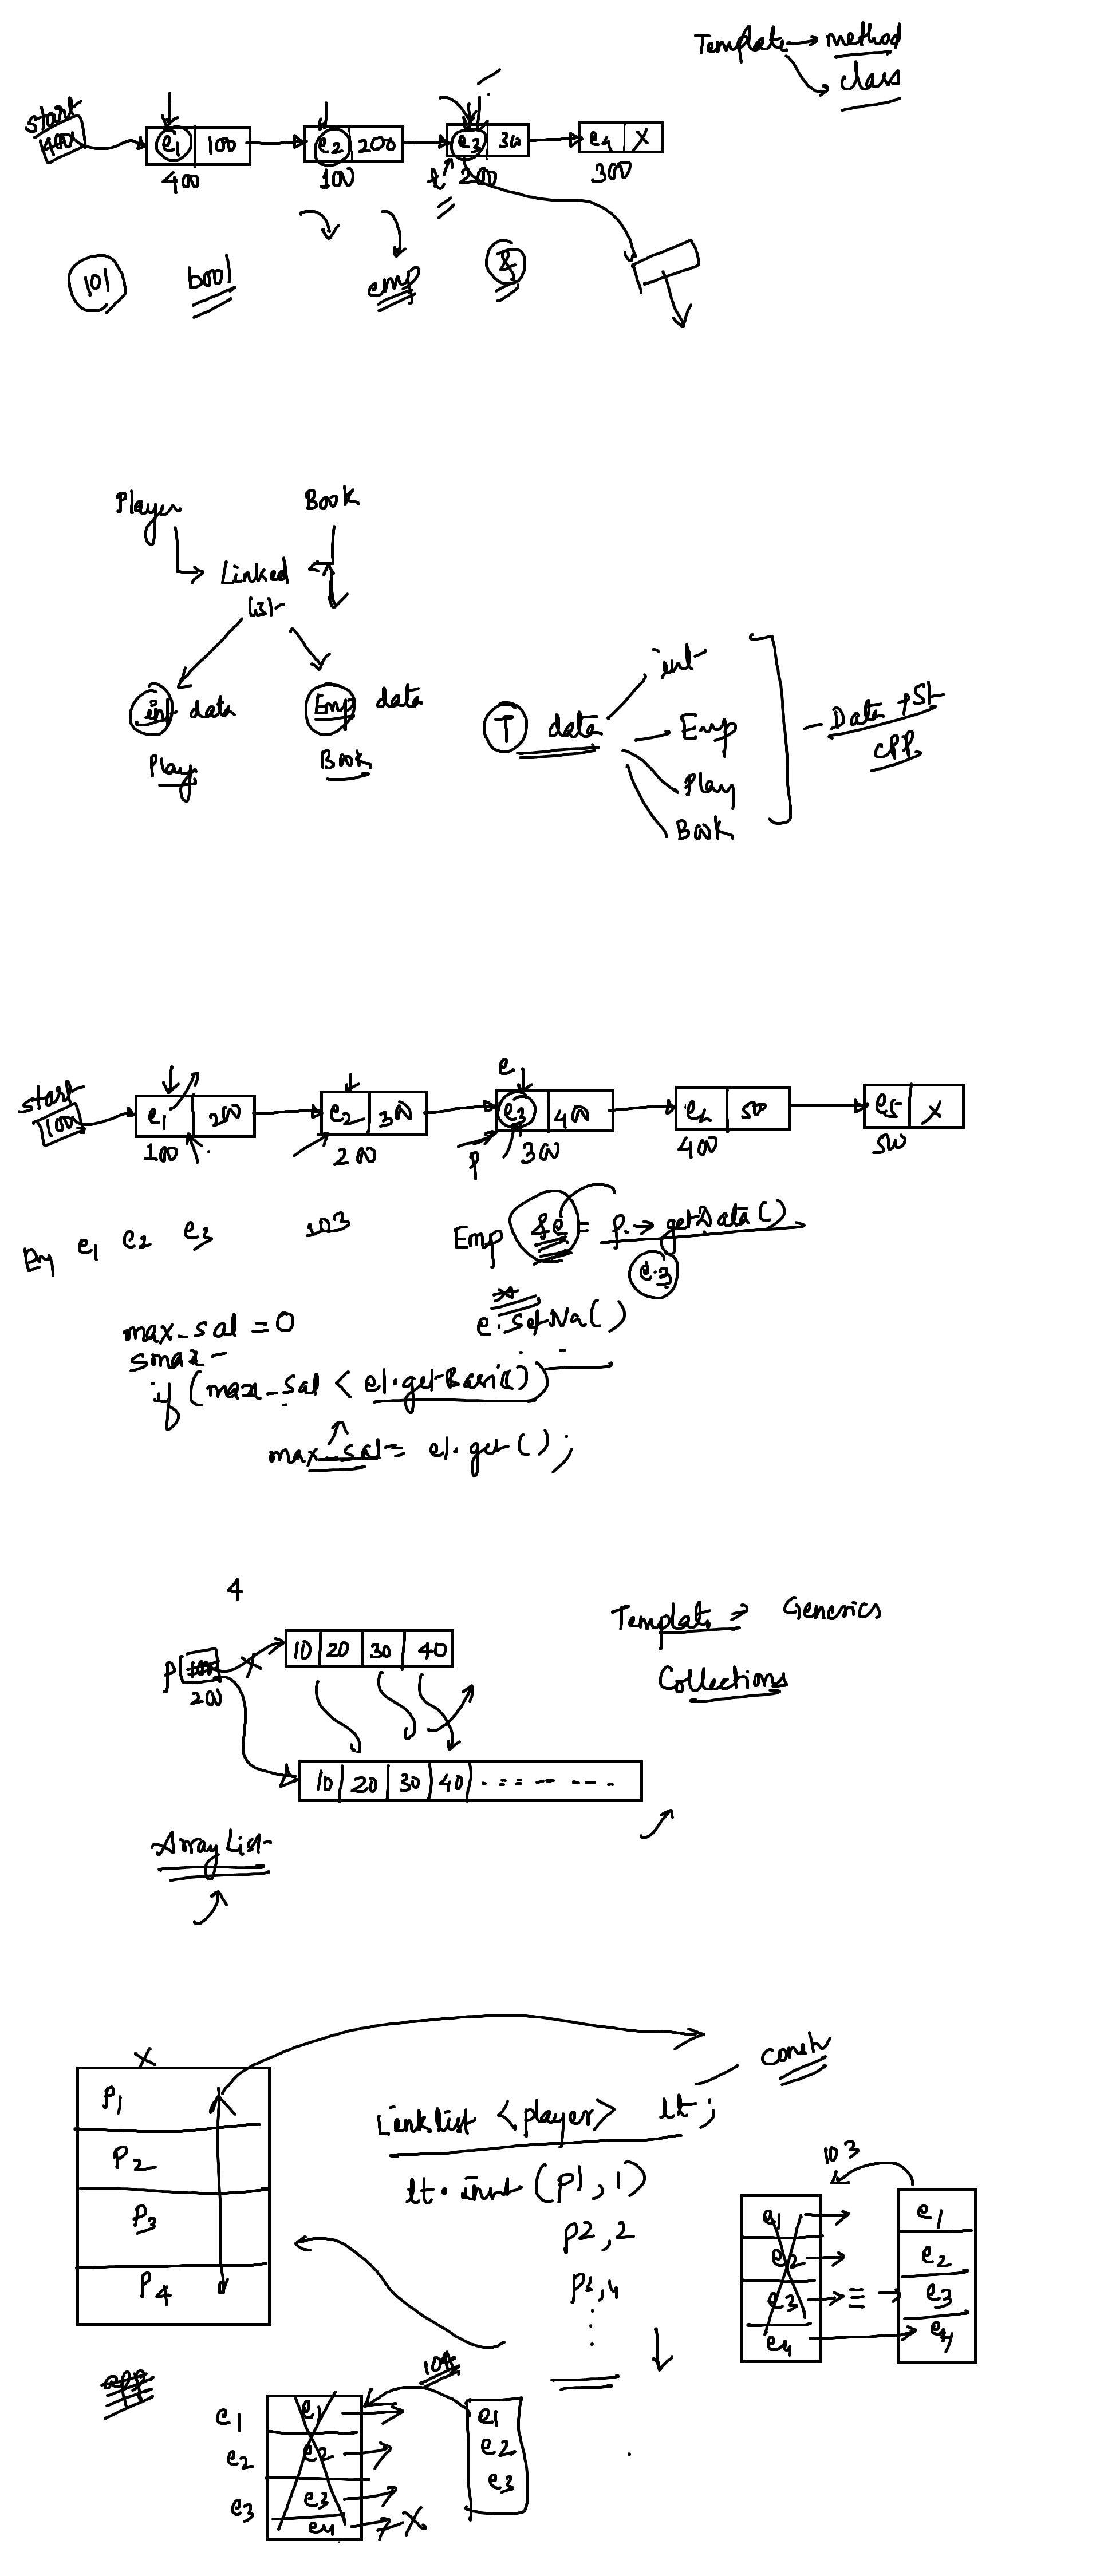 Template → method
class
start
400
e1 100
e2 200
e3 300
e4 X
400
100
t 200
300
101 bool emp &
Player Book
Linked
list
int data Emp data
Play Book
T data
int
Emp
Play
Book
Data + St
CPP
start
100
e1 200
e2 300
e3 400
e4 500
e5 X
e
100
200
p 300
400
500
e1 e2 e3 103
Emp &e = p → getData()
e.3
max_sal = 0
e.setNa()
smax
if (max_sal < e1.getBasic())
max_sal = e1.get();
4
10 20 30 40
p 100
200
10 20 30 40
Template → Generics
Collections
Array List
X
P1
P2
P3
P4
const
Linklist <player> lt;
p1, 1)
p2, 2
103
e1
e2
e3
e4
e1
e2
e3
e4
104
e1
e2
e3
e1
e2
e3
e4 X
e1
e2
e3